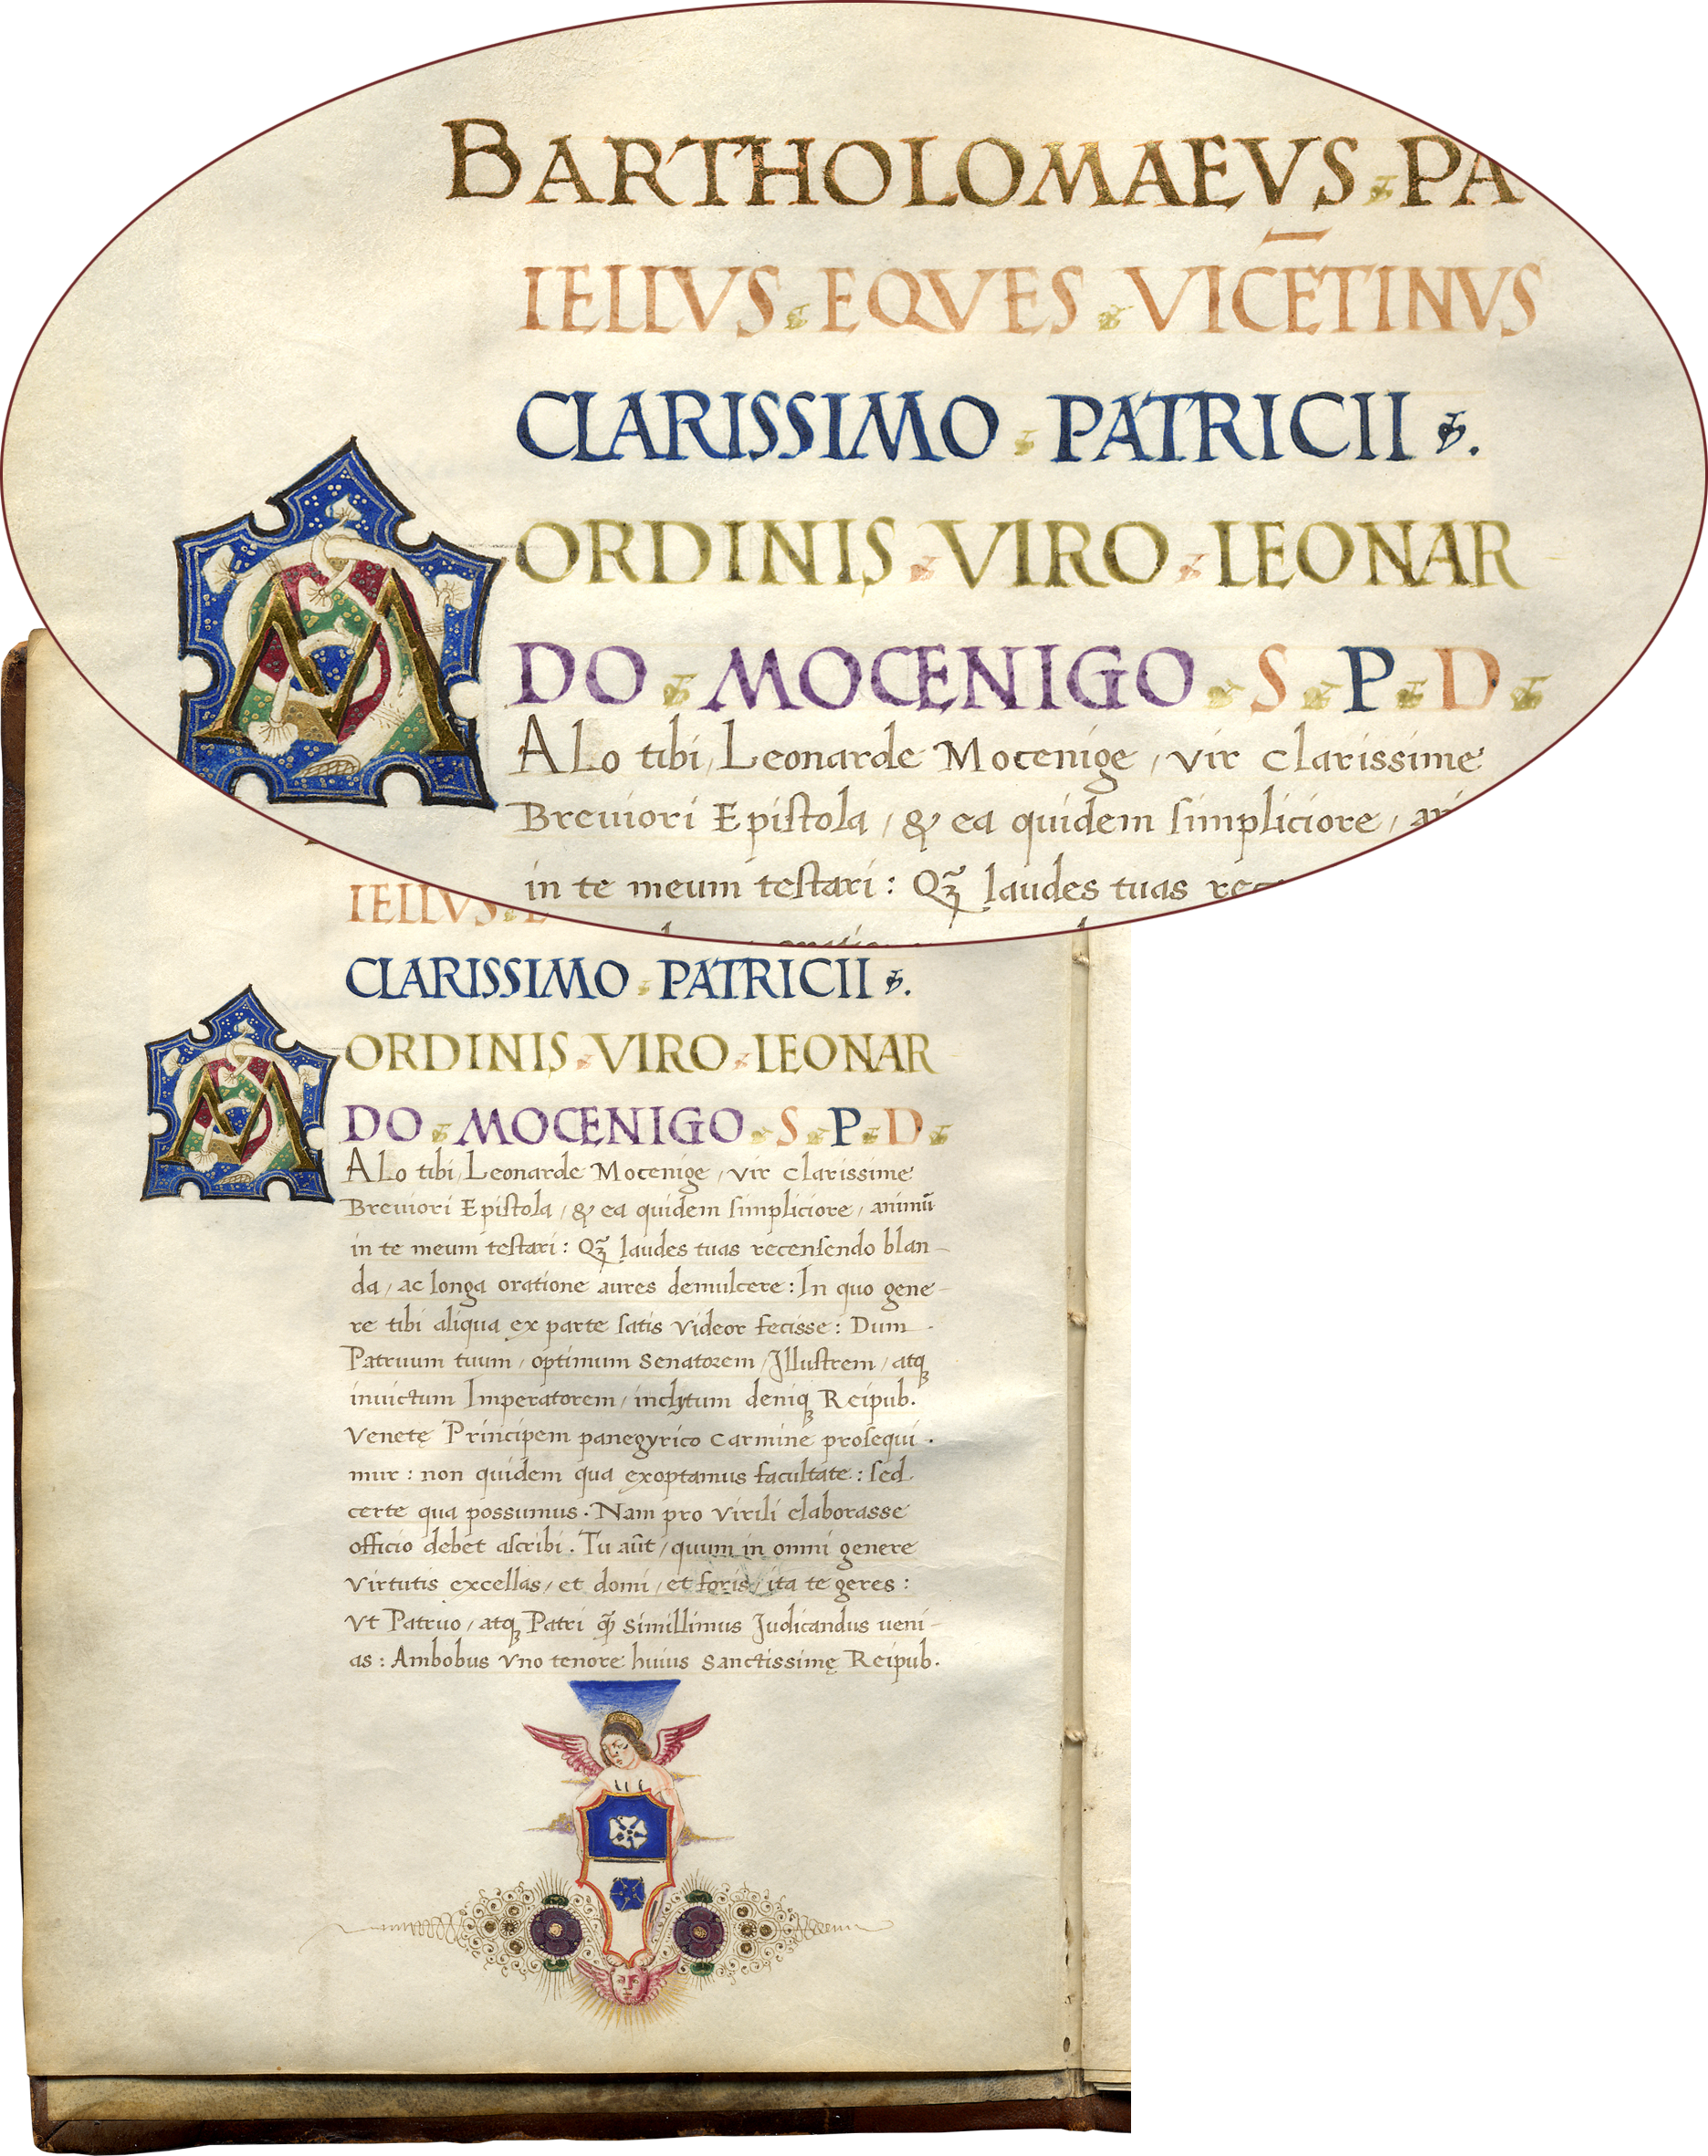 BARTHOLOMAEVS PA
IELLVS EQVES VICĒTINVS
CLARISSIMO PATRICII
ORDINIS VIRO LEONAR
DO MOCENIGO S P D
MALo tibi, Leonarde Mocenige, vir clarissime
Breuiori Epiſtola, & ea quidem ſimpliciore,
in te meum teſtari: Qꝫ̃ laudes tuas
IELLVS
CLARISSIMO PATRICII
ORDINIS VIRO LEONAR
DO MOCENIGO S P D
MALo tibi, Leonarde Mocenige, vir clarissime
Breuiori Epiſtola, & ea quidem ſimpliciore, animū
in te meum teſtari: Qꝫ̃ laudes tuas recenſendo blan-
da, ac longa oratione aures demulcere: In quo gene-
re tibi aliqua ex parte ſatis videor fecisse: Dum
Patruum tuum, optimum Senatorem, Illuſtrem, atqꝫ
inuictum Imperatorem, inclytum deniqꝫ Reipub.
Venetę Principem panegyrico carmine proſequi-
mur: non quidem qua exoptamus facultate: ſed
certe qua possumus. Nam pro virili elaborasse
officio debet aſcribi. Tu aūt, quum in omni genere
virtutis excellas, et domi, et foris, ita te geres:
Vt Patruo, atqꝫ Patri ꝙ̃ simillimus Iudicandus ueni-
as: Ambobus vno tenore huius Sanctissimę Reipub.